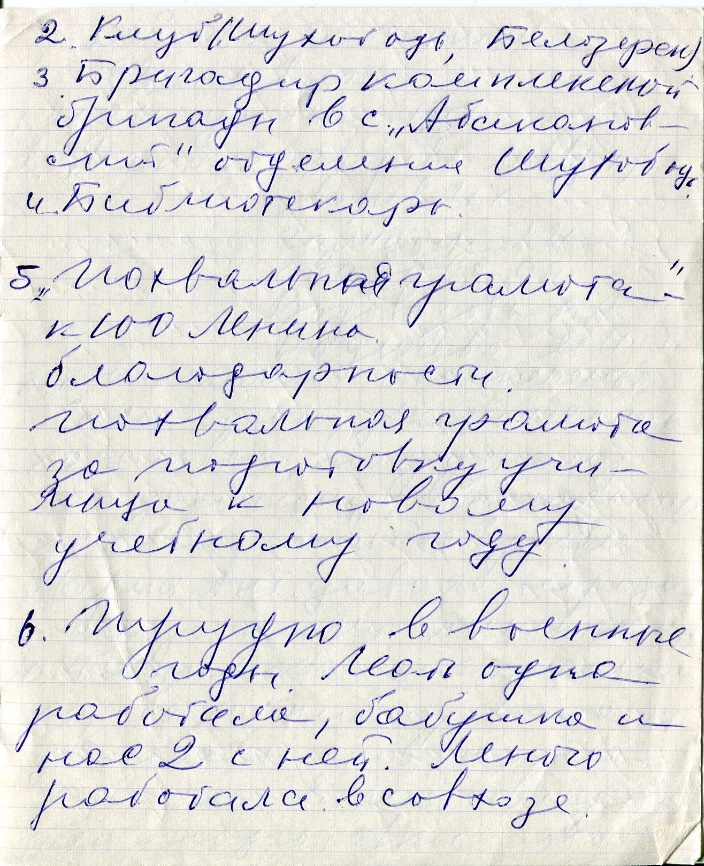 2. Клуб (Шухободь, Белозерск)
3. Бригадир комплексной
бригады в с „Абаканов-
ский" отделение Шухободь.
4. Библиотекарь.
5. „Похвальная грамота"-
к 100 Ленина.
благодарности.
похвальная грамота
за подготовку учи-
лища к новому
учебному году.
6. Трудно в военные
годы. Мать одна
работала, бабушка и
нас 2 с ней. Много
работала в совхозе.